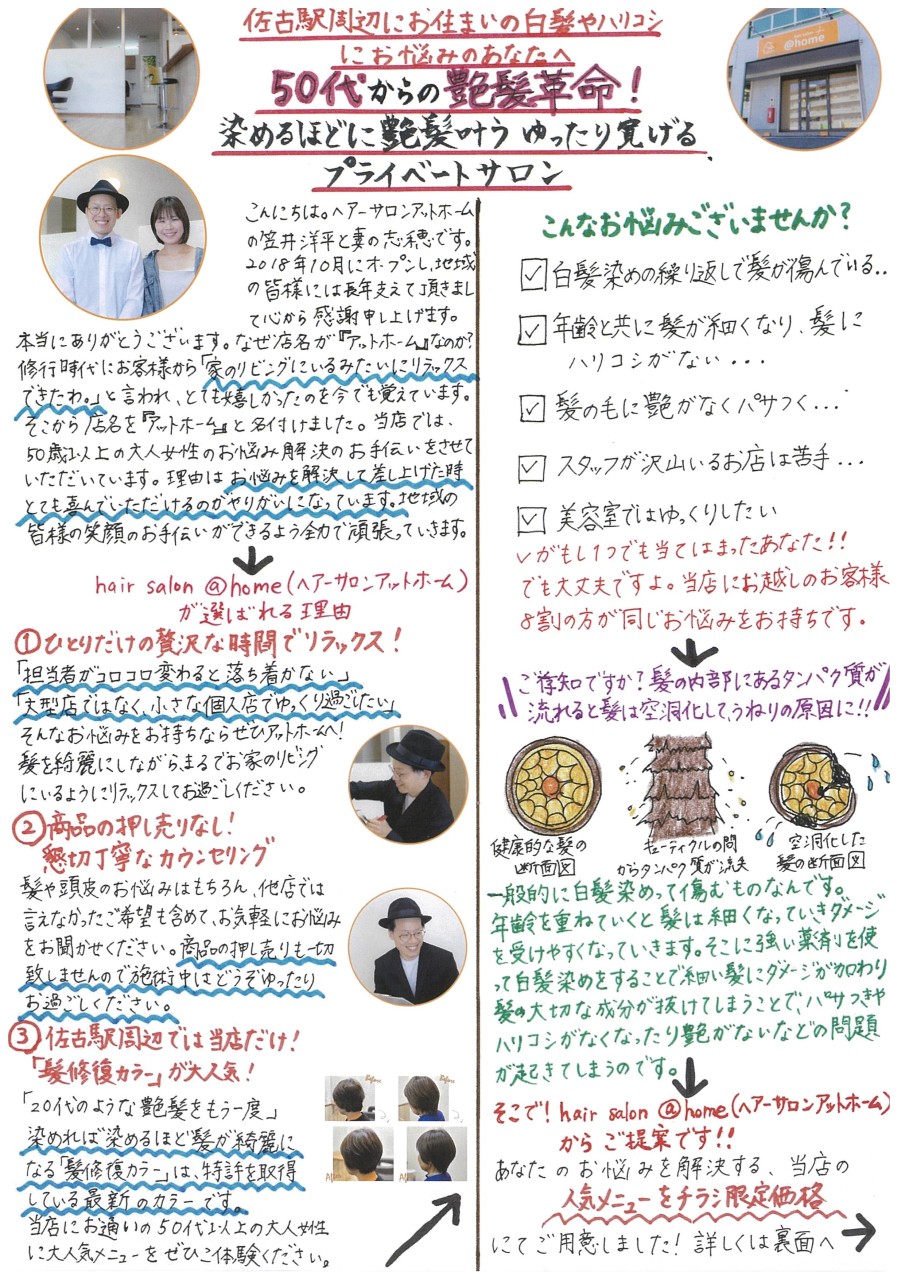 佐古駅周辺にお住まいの白髪やハリコシ
にお悩みのあなたへ
50代からの艶髪革命！
染めるほどに艶髪叶う ゆったり寛げる
プライベートサロン
@home
こんにちは。ヘアーサロンアットホーム
の笠井洋平と妻の志穂です。
2018年10月にオープンし、地域
の皆様には長年支えて頂きまし
て心から感謝申し上げます。
本当にありがとうございます。なぜ店名が『アットホーム』なのか?
修行時代にお客様から「家のリビングにいるみたいにリラックス
できたわ。」と言われ、とても嬉しかったのを今でも覚えています。
そこから店名を『アットホーム』と名付けました。当店では、
50歳以上の大人女性のお悩み解決のお手伝いをさせて
いただいています。理由はお悩みを解決して差し上げた時
とても喜んでいただけるのがやりがいになっています。地域の
皆様の笑顔のお手伝いができるよう全力で頑張っていきます。
hair salon @home(ヘアーサロンアットホーム)
が選ばれる理由
①ひとりだけの贅沢な時間でリラックス!
「担当者がコロコロ変わると落ち着かない」
「大型店ではなく、小さな個人店でゆっくり過ごしたい」
そんなお悩みをお持ちならぜひアットホームへ!
髪を綺麗にしながら、まるでお家のリビング
にいるようにリラックスしてお過ごしください。
②商品の押し売りなし!
懇切丁寧なカウンセリング
髪や頭皮のお悩みはもちろん、他店では
言えなかったご希望も含めて、お気軽にお悩み
をお聞かせください。商品の押し売りも一切
致しませんので施術中はどうぞゆったり
お過ごしください。
③佐古駅周辺では当店だけ!
「髪修復カラー」が大人気!
「20代のような艶髪をもう一度」
染めれば染めるほど髪が綺麗に
なる「髪修復カラー」は、特許を取得
している最新のカラーです。
当店にお通いの50代以上の大人女性
に大人気メニューをぜひご体験ください。
Before
Before
こんなお悩みございませんか?
白髪染めの繰り返しで髪が傷んでいる..
年齢と共に髪が細くなり、髪に
ハリコシがない...
髪の毛に艶がなくパサつく...
スタッフが沢山いるお店は苦手...
美容室ではゆっくりしたい
✓がもし1つでも当てはまったあなた!!
でも大丈夫ですよ。当店にお越しのお客様
8割の方が同じお悩みをお持ちです。
ご存知ですか?髪の内部にあるタンパク質が
流れると髪は空洞化して、うねりの原因に!!
健康的な髪の
断面図
キューティクルの間
からタンパク質が流失
空洞化した
髪の断面図
一般的に白髪染めって傷むものなんです。
年齢を重ねていくと髪は細くなっていきダメージ
を受けやすくなっていきます。そこに強い薬剤を使
って白髪染めをすることで細い髪にダメージが加わり
髪の大切な成分が抜けてしまうことで、パサつきや
ハリコシがなくなったり艶がないなどの問題
が起きてしまうのです。
そこで! hair salon @home(ヘアーサロンアットホーム)
からご提案です!!
あなたのお悩みを解決する、当店の
人気メニューをチラシ限定価格
にてご用意しました! 詳しくは裏面へ